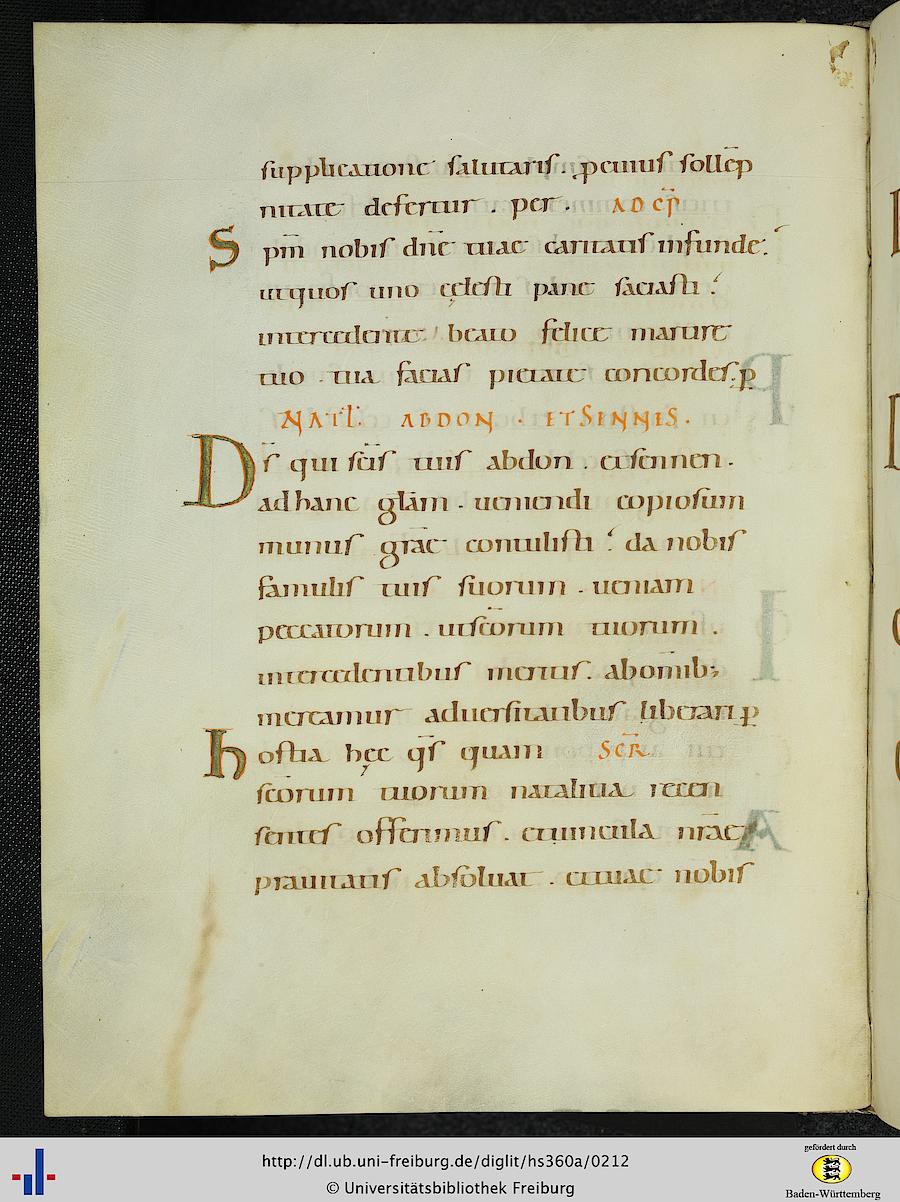 supplicatione salutaris . p̱etitus sollēp
nitate defertur . per . AD CP̄
Spm̄ nobis dn̄e tuae caritatis infunde:
ut quos uno cęlesti pane satiasti :
intercedente beato felice martire
tuo . tua facias pietate concordes . ꝑ
NATL̄ . ABDON . ET SENNES .
Ds̄ qui sc̄is tuis abdon . et sennen .
ad hanc glām . ueniendi copiosum
munus grāe contulisti : da nobis
famulis tuis suorum . ueniam
peccatorum . ut sc̄orum tuorum .
intercedentibus meritis . ab om̄ib;
mereamur aduersitatibus liberari ꝑ
hostia hęc qs̄ quam SCR̄
sc̄orum tuorum natalitia recen
sentes offerimus . et uincula nrāe
prauitatis absoluat . et tuae nobis
http://dl.ub.uni-freiburg.de/diglit/hs360a/0212
© Universitätsbibliothek Freiburg
gefördert durch
Baden-Württemberg